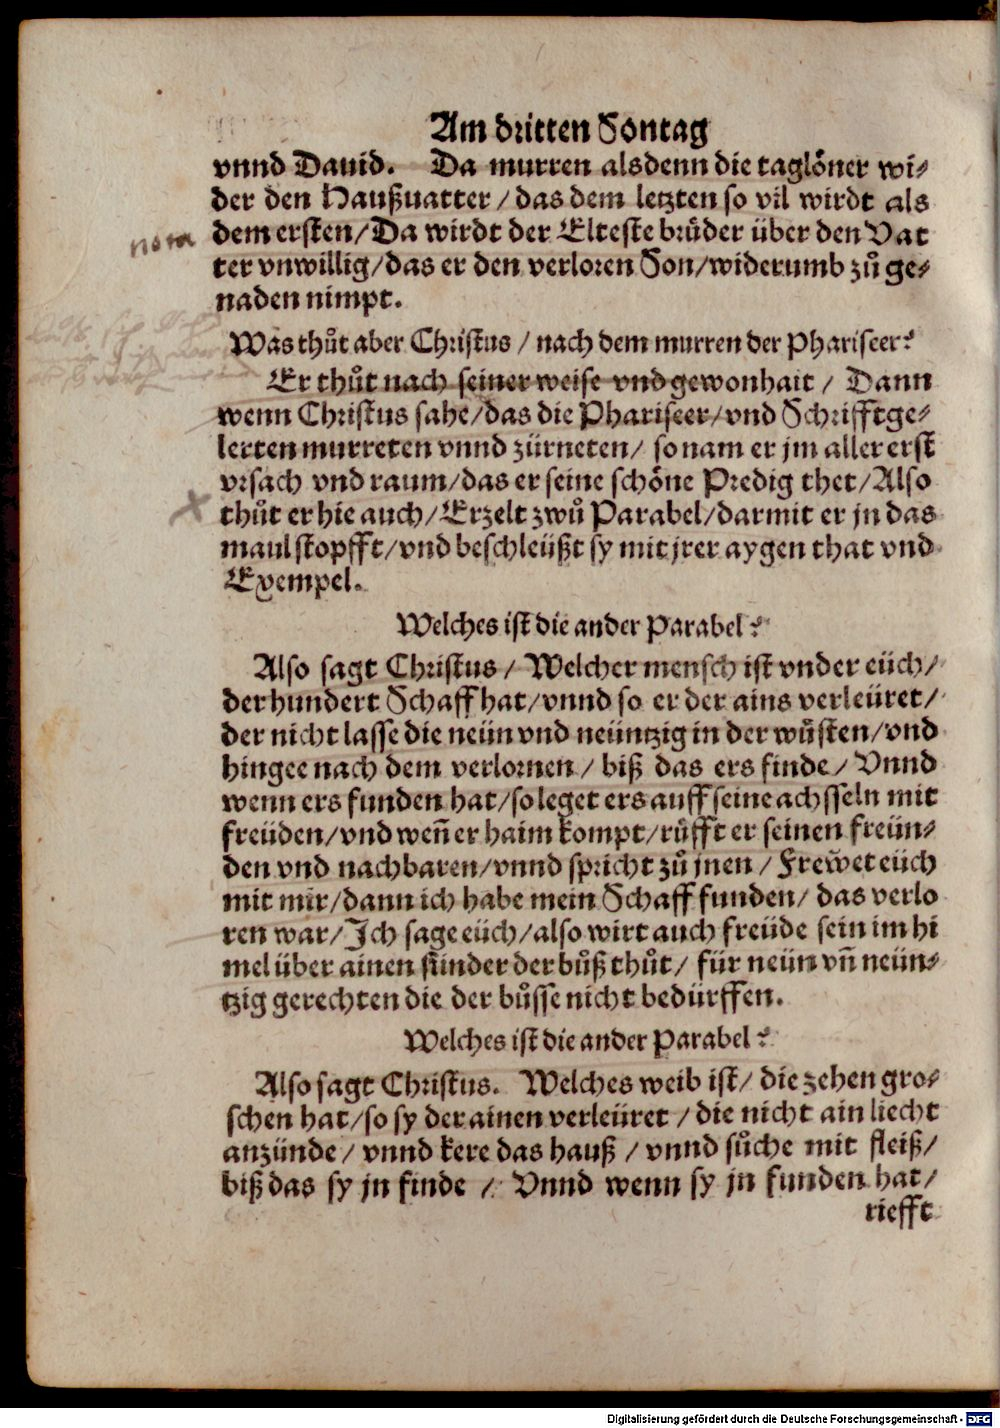 Am dritten Sontag
vnnd Dauid. Da murren alsdenn die taglöner wi⸗
der den Haußuatter / das dem letzten so vil wirdt als
dem ersten / Da wirdt der Elteste brůder über den Vat
ter vnwillig / das er den verloren Son / widerumb zů ge⸗
naden nimpt.
nota
Was thůt aber Christus / nach dem murren der Phariseer?
Er thůt nach seiner weise vnd gewonhait / Dann
wenn Christus sahe / das die Phariseer / vnd Schrifftge⸗
lerten murreten vnnd zürneten / so nam er jm aller erst
vrsach vnd raum / das er seine schöne Predig thet / Also
thůt er hie auch / Erzelt zwů Parabel / darmit er jn das
maul stopfft / vnd beschleüßt sy mit jrer aygen that vnd
Exempel.
Welches ist die ander Parabel?
Also sagt Christus / Welcher mensch ist vnder eüch /
der hundert Schaff hat / vnnd so er der ains verleüret /
der nicht lasse die neün vnd neüntzig in der wůsten / vnd
hingee nach dem verlornen / biß das ers finde / Vnnd
wenn ers funden hat / so leget ers auff seine achsseln mit
freüden / vnd weñ er haim kompt / růfft er seinen freün⸗
den vnd nachbaren / vnnd spricht zů jnen / Frewet eüch
mit mir / dann ich habe mein Schaff funden / das verlo
ren war / Ich sage eüch / also wirt auch freüde sein im hi
mel über ainen sünder der bůß thůt / für neün vñ neün⸗
tzig gerechten die der bůsse nicht bedürffen.
Welches ist die ander Parabel?
Also sagt Christus. Welches weib ist / die zehen gro⸗
schen hat / so sy der ainen verleüret / die nicht ain liecht
anzünde / vnnd kere das hauß / vnnd sůche mit fleiß /
biß das sy jn finde / Vnnd wenn sy jn funden hat /
riefft
Digitalisierung gefördert durch die Deutsche Forschungsgemeinschaft - DFG